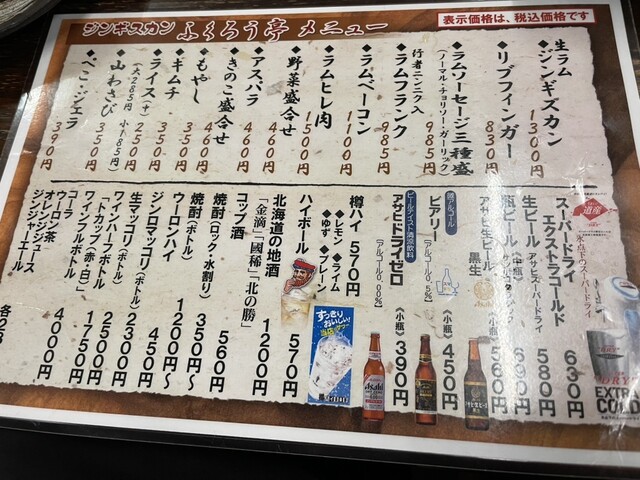 ジンギスカン ふくろう亭 メニュー
表示価格は、税込価格です
◆生ラム
ジンギスカン 1300円
◆リブフィンガー 830円
◆ラムソーセージ三種盛
(ノーマル・チョリソー・ガーリック) 985円
行者ニンニク入
◆ラムフランク 985円
◆ラムベーコン 1100円
◆ラムヒレ肉 1500円
◆野菜盛合せ 460円
◆アスパラ 460円
◆きのこ盛合せ 460円
◆もやし 350円
◆キムチ 350円
◆ライス(中) 250円
(大285円 小185円)
◆山わさび 350円
◆べこ・ジェラ 390円
スーパードライ
エクストラコールド 630円
生ビール アサヒスーパードライ 580円
瓶ビール (中瓶) 690円
アサヒ生ビール 黒生 (小瓶) 560円
ビアリー (小瓶) 450円
ビールテイスト清涼飲料
アサヒドライゼロ (小瓶) 390円
樽ハイ 570円
◆レモン ◆ライム
◆ゆず ◆プレーン
ハイボール 570円
北海道の地酒
「金滴」「國稀」「北の勝」 1200円
コップ酒 560円
焼酎(ロック・水割り) 350円~
焼酎(ボトル) 1200円~
ウーロンハイ 450円
ジンロマッコリ(ボトル) 2300円
生マッコリ(ボトル) 2500円
ワインハーフボトル 1750円
「トカップ(赤・白)」
ワインフルボトル 4000円
コーラ
ウーロン茶
オレンジジュース
ジンジャーエール
すっきり
おいしい!
道産
氷点下のスーパードライ
EXTRA
COLD
Asahi